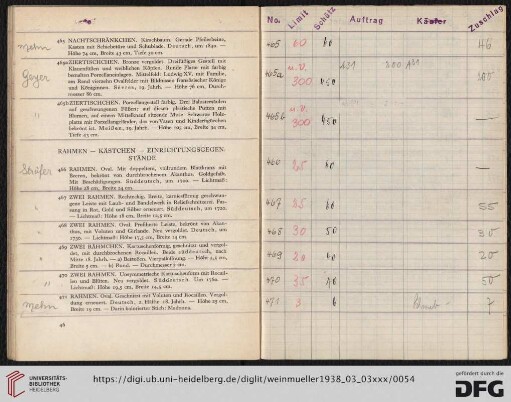 465 NACHTSCHRÄNKCHEN. Kirschbaum. Gerade Pfeilerbeine,
Kasten mit Schiebetüre und Schublade. Deutsch, um 1820. —
Höhe 74 cm, Breite 43 cm, Tiefe 30 cm.
465a ZIERTISCHCHEN. Bronze vergoldet. Dreifüßiges Gestell mit
Klauenfüßen und weiblichen Köpfen. Runde Platte mit farbig
bemalten Porzellaneinlagen. Mittelfeld: Ludwig XV. mit Familie,
am Rand vierzehn Ovalfelder mit Bildnissen französischer Könige
und Königinnen. Sèvres, 19. Jahrh. — Höhe 76 cm, Durch-
messer 86 cm.
465b ZIERTISCHCHEN. Porzellangestell farbig. Drei Balusterstufen
auf geschwungenen Füßen; auf diesen plastische Putten mit
Blumen, auf einem Mittelknauf sitzende Muse. Schwarze Holz-
platte mit Porzellangeländer, das von Vasen und Kinderfigürchen
bekrönt ist. Meißen, 19. Jahrh. — Höhe 105 cm, Breite 54 cm,
Tiefe 43 cm.
RAHMEN — KÄSTCHEN — EINRICHTUNGSGEGEN-
STÄNDE
466 RAHMEN. Oval. Mit doppeltem, vollrunden Blattkranz mit
Beeren, bekrönt von durchbrochenem Akanthus. Goldgefaßt.
Mit Beschädigungen. Süddeutsch, um 1700. — Lichtmaß:
Höhe 28 cm, Breite 24 cm.
467 ZWEI RAHMEN. Rechteckig. Breite, karniesförmig geschwun-
gene Leiste mit Laub- und Bandelwerk in Reliefschnitzerei. Fas-
sung in Rot, Gold und Silber erneuert. Süddeutsch, um 1720.
— Lichtmaß: Höhe 18 cm, Breite 14,5 cm.
468 ZWEI RAHMEN. Oval. Profilierte Leiste, bekrönt von Akan-
thus, mit Voluten und Girlande. Neu vergoldet. Deutsch, um
1730. — Lichtmaß: Höhe 17,5 cm, Breite 14 cm.
469 ZWEI RÄHMCHEN. Kartuschenförmig, geschnitzt und vergol-
det, mit durchbrochener Rocaille. Beide süddeutsch, nach
Mitte 18. Jahrh. — a) Bemalen. Vierpaßöffnung — Höhe 9,5 cm,
Breite 9 cm. — b) Rund. — Durchmesser 7 cm.
470 ZWEI RAHMEN. Unsymmetrische Kartuschenform mit Rocail-
len und Blüten. Neu vergoldet. Süddeutsch. Um 1760. —
Lichtmaß: Höhe 19,5 cm, Breite 14,5 cm.
471 RAHMEN. Oval. Geschnitzt mit Voluten und Rocaillen. Vergol-
dung erneuert. Deutsch, 2. Hälfte 18. Jahrh. — Höhe 29 cm,
Breite 19 cm. — Darin kolorierter Stich: Madonna.
46
No. Limit Schätz Auftrag Käufer Zuschlag
465 60 80 46
465a 300 450
465b 300 450 —
466 25 40 —
467 35 60 55
468 30 50 30
469 20 40 20
470 35 40 50
471 3 6 7
UNIVERSITÄTS-
BIBLIOTHEK
HEIDELBERG
https://digi.ub.uni-heidelberg.de/diglit/weinmueller1938_03_03xxx/0054
gefördert durch die
DFG